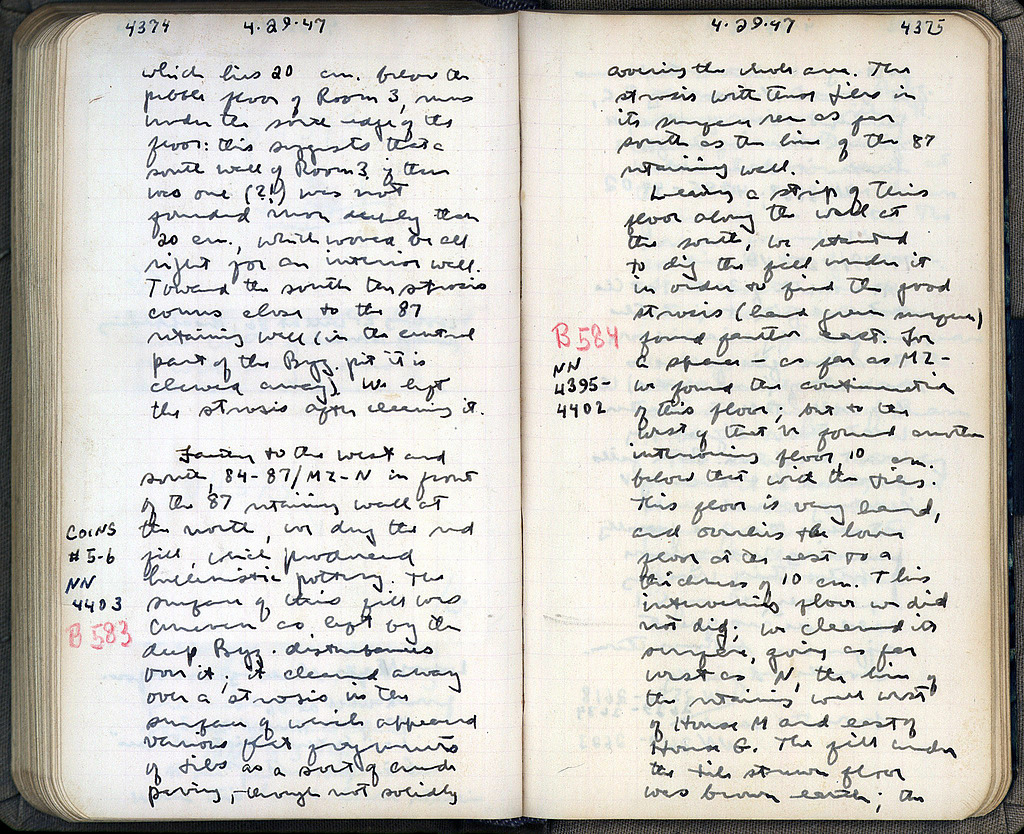 4374
4.29.47
which lies 20 cm. below the
pebble floor of Room 3, runs
under the south edge of the
floor: this suggests that a
south wall of Room 3, if there
was one (?!) was not
founded more deeply than
20 cm., which would be all
right for an interior wall.
Toward the south the strosis
comes close to the 87
retaining wall (in the central
part of the Byz. pit it is
cleared away). We left
the strosis after cleaning it.
Farther to the west and
south, 84-87/MZ-N in front
of the 87 retaining wall at
the north, we dug the red
fill, which produced
hellenistic pottery. The
surface of this fill was
uneven as left by the
deep Byz. disturbances
over it; it cleaned away
over a strosis in the
surface of which appeared
various flat fragments
of tiles as a sort of crude
paving, though not solidly
COINS
#5-6
NN
4403
B 583
4.29.47
4375
covering the whole area. The
strosis with these tiles in
its surface ran as far
south as the line of the 87
retaining wall.
Leaving a strip of this
floor along the wall at
the south, we started
to dig the fill under it
in order to find the good
strosis (hard green surface)
found farther east. For
a space - as far as MZ -
we found the continuation
of this floor; but to the
west of that we found another
intervening floor 10 cm.
below that with the tiles.
This floor is very hard,
and overlies the lower
floor at the east to a
thickness of 10 cm. This
intervening floor we did
not dig; we cleaned its
surface, going as far
west as N, the line of
the retaining wall west
of House M and east of
House G. The fill under
the tile strewn floor
was brown earth; the
B 584
NN
4395-
4402